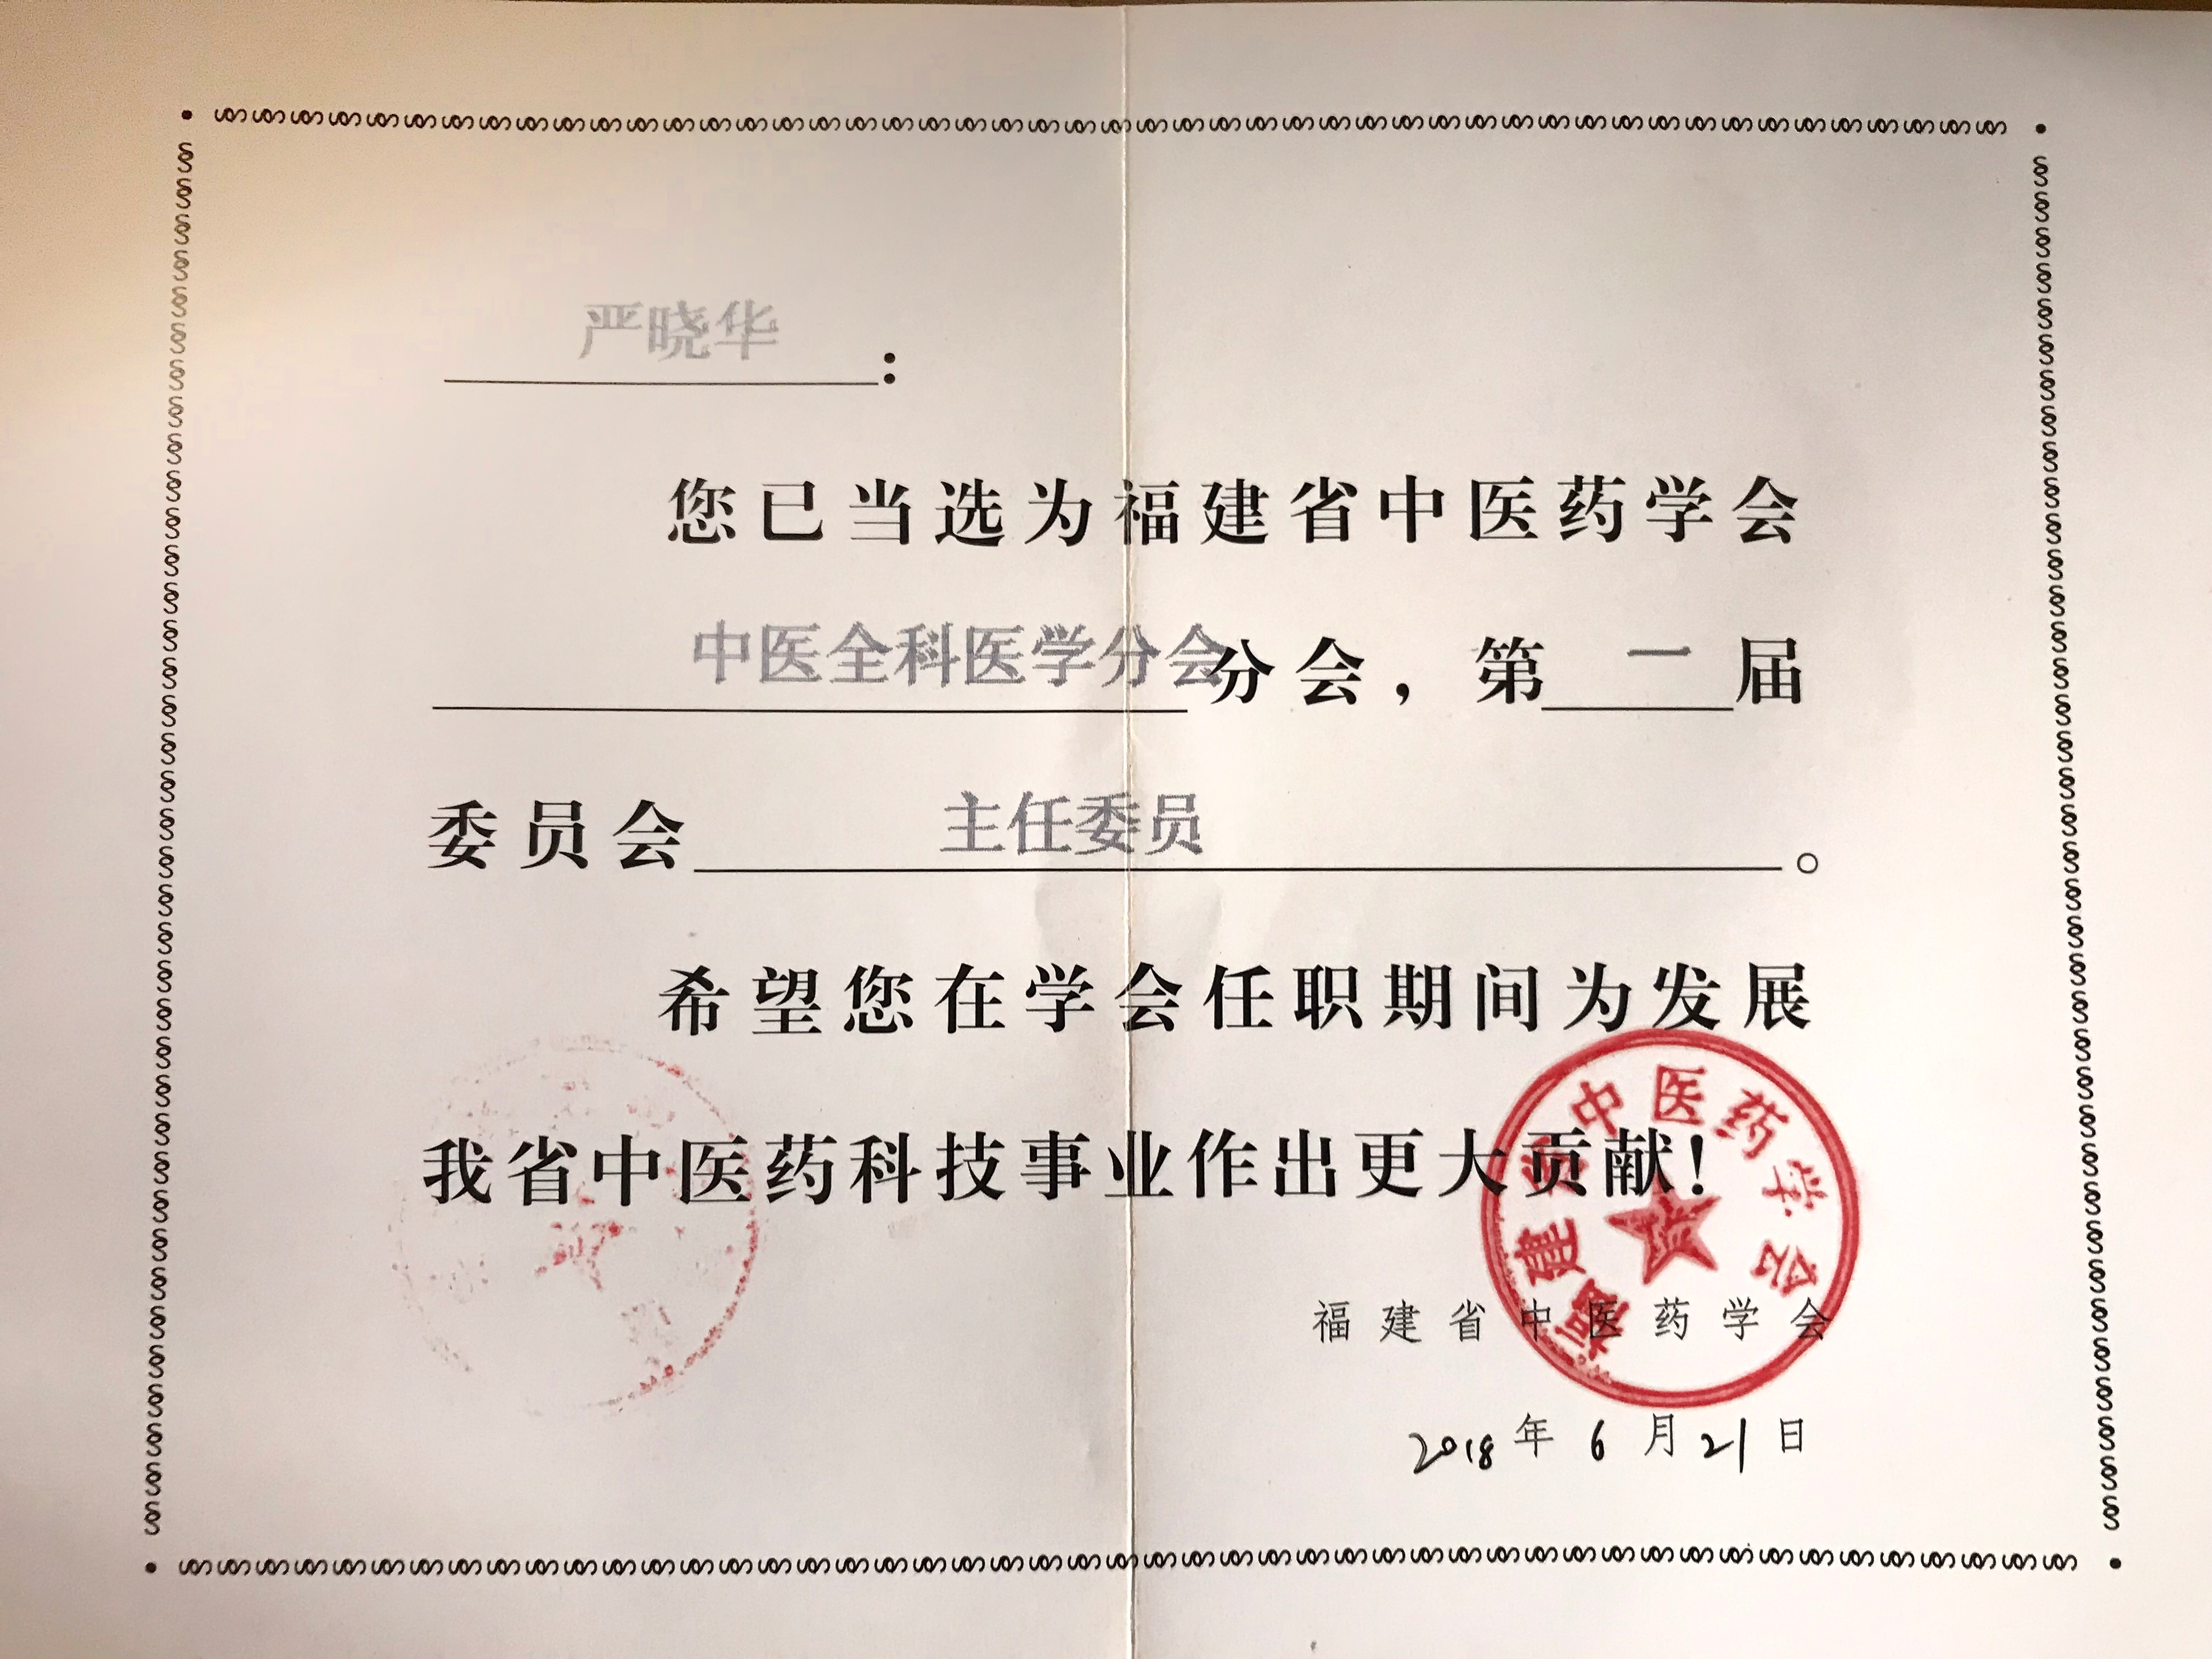 严晓华：
您已当选为福建省中医药学会
中医全科医学分会分会，第一届
委员会主任委员。
希望您在学会任职期间为发展
我省中医药科技事业作出更大贡献！
福建省中医药学会
福建省中医药学会
2018年6月21日